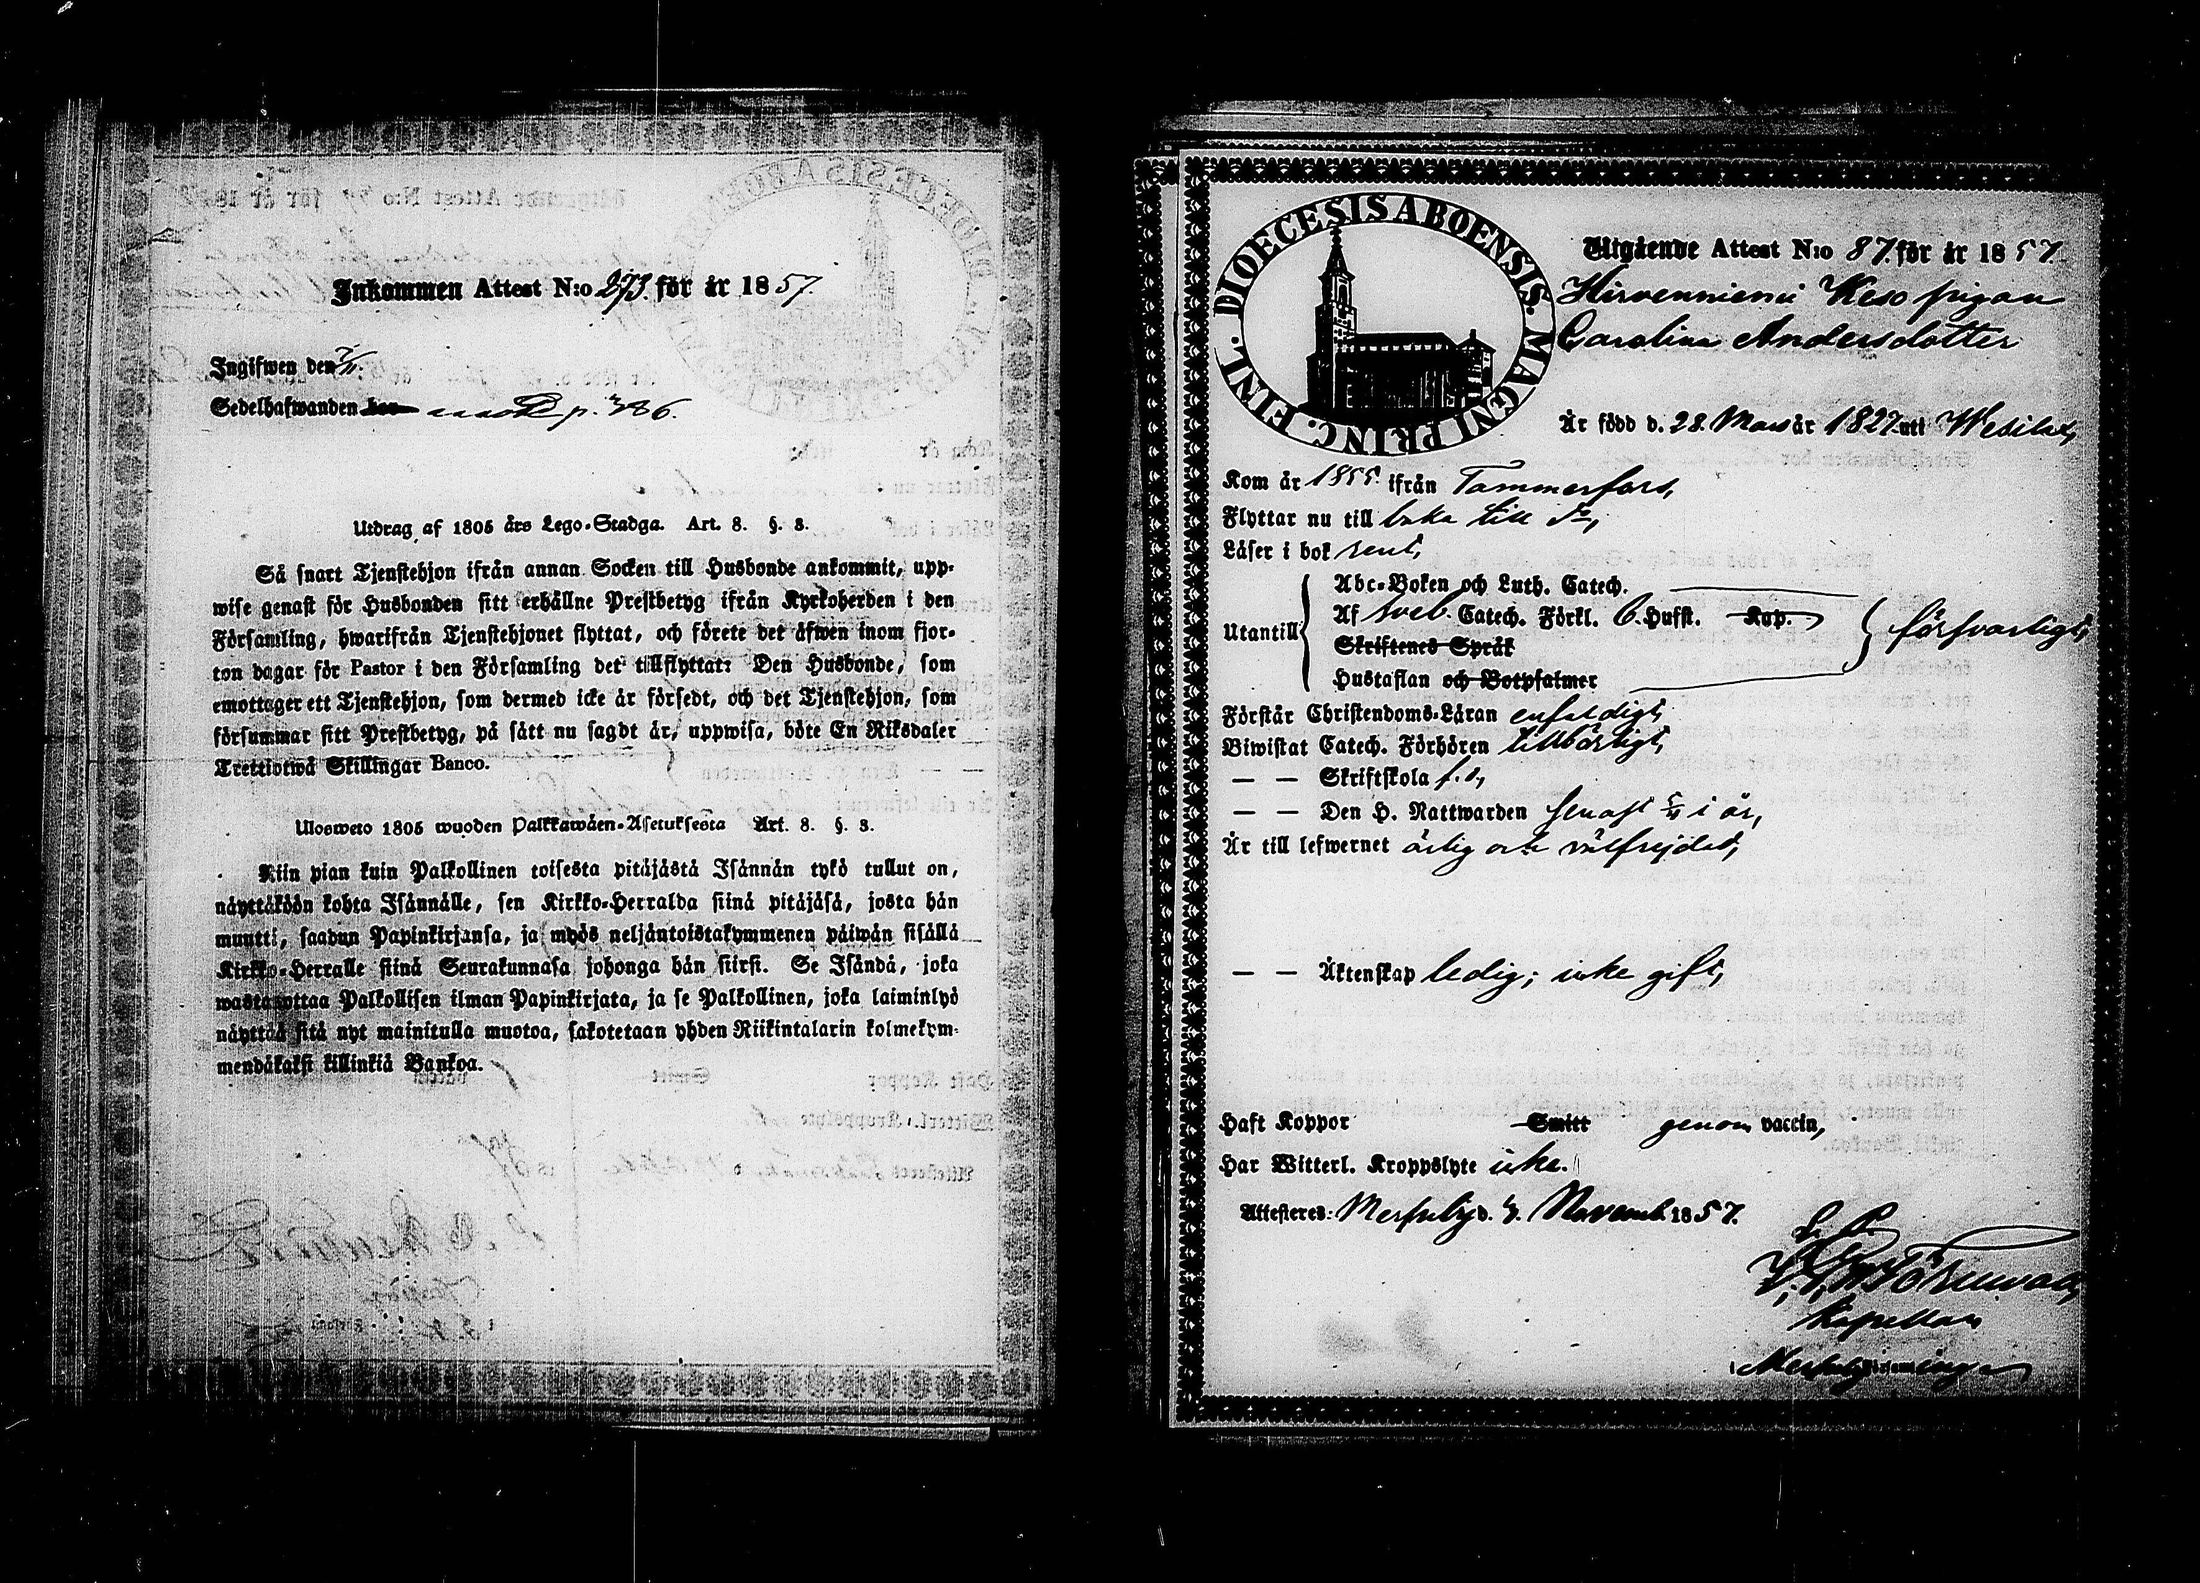 Inkommen Attest N:o 273. för år 1857.
Ingifwen den
Sedelhafwanden p. 386.
Utdrag af 1805 års Lego-Stadga. Art. 8. §. 8.
Så snart Tjenstehjon ifrån annan Socken till Husbonde ankommit, upp-
wise genast för Husbonden sitt erhållne Prestbetyg ifrån Kyrkoherden i den
Församling, hwarifrån Tjenstehjonet flyttat, och förete det åfwen inom fjor-
ton dagar för Pastor i den Församling det tillflyttat: Den Husbonde, som
emottager ett Tjenstehjon, som dermed icke är försedt, och det Tjenstehjon, som
försummar sitt Prestbetyg, på sått nu sagdt är, uppwisa, böte En Riksdaler
Trettiotwå Skillingar Banco.
Ulosweto 1805 wuoden Palkkawåen-Asetuksesta Art. 8. §. 8.
Niin pian kuin Palkollinen toisesta pitäjästä Isännän tykö tullut on,
näyttäköön kohta Isännälle, sen Kirkko-Herralda siinä pitäjäsä, josta hän
muutti, saadun Papinkirjansa, ja myös neljäntoistakymmenen päiwän sisällä
Kirkko-Herralle siinä Seurakunnasa johonga hän siirsi. Se Isändä, joka
wastanottaa Palkollisen ilman Papinkirjata, ja se Palkollinen, joka laiminlyö
näyttää sitä nyt mainitulla muotoa, sakotetaan yhden Riikintalarin kolmekym-
mendäkaksi killinkiä Bankoa.
DIOECESIS ABOENSIS. MAGNI PRINC. FINL.
Utgående Attest N:o 87. för år 1857.
Hirvenniemi Keso pigan
Carolina Andersdotter
Är född d. 28. Mars år 1827 uti Wesilax,
Kom år 1855. ifrån Tammerfors,
Flyttar nu till baka till do,
Läser i bok rent,
Utantill
Abc-Boken och Luth. Catech.
Af Sveb. Catech. Förkl. 6. Hufst. Kap.
Skriftenes Språk
Hustaflan och Botpsalmer
försvarligt,
Förstår Christendoms-Läran enfaldigt,
Biwistat Catech. Förhören tillbörligt,
— — Skriftskola
— — Den H. Nattwarden senast i år,
Är till lefwernet ärlig och välfrejdad,
— — Äktenskap ledig; icke gift,
Haft Koppor Smitt genom vaccin,
Har Witterl. Kroppslyte icke.
Attesteres: Merfuby d. 3. Novemb. 1857.
Kapellan